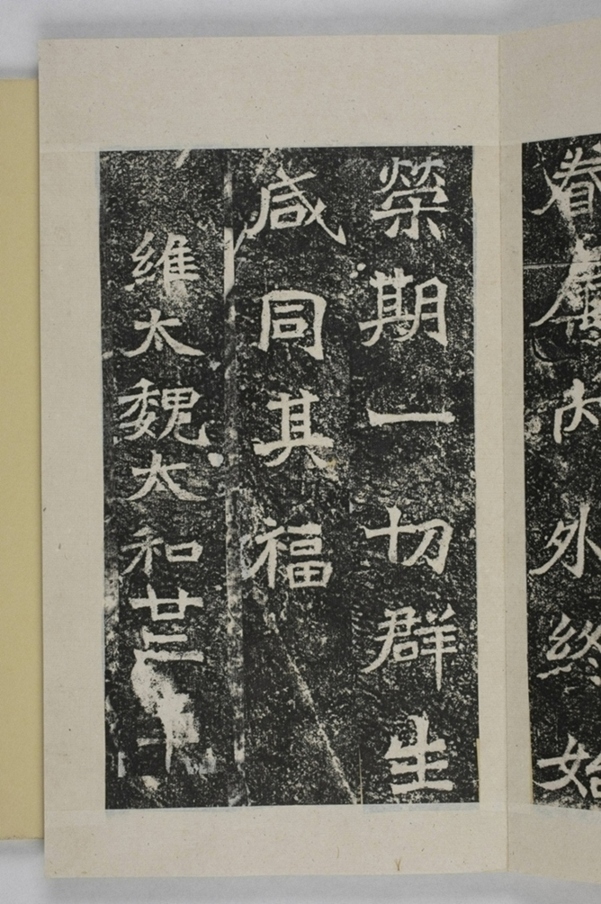 眷屬內外終始
榮期一切群生
咸同其福
維太魏太和廿二